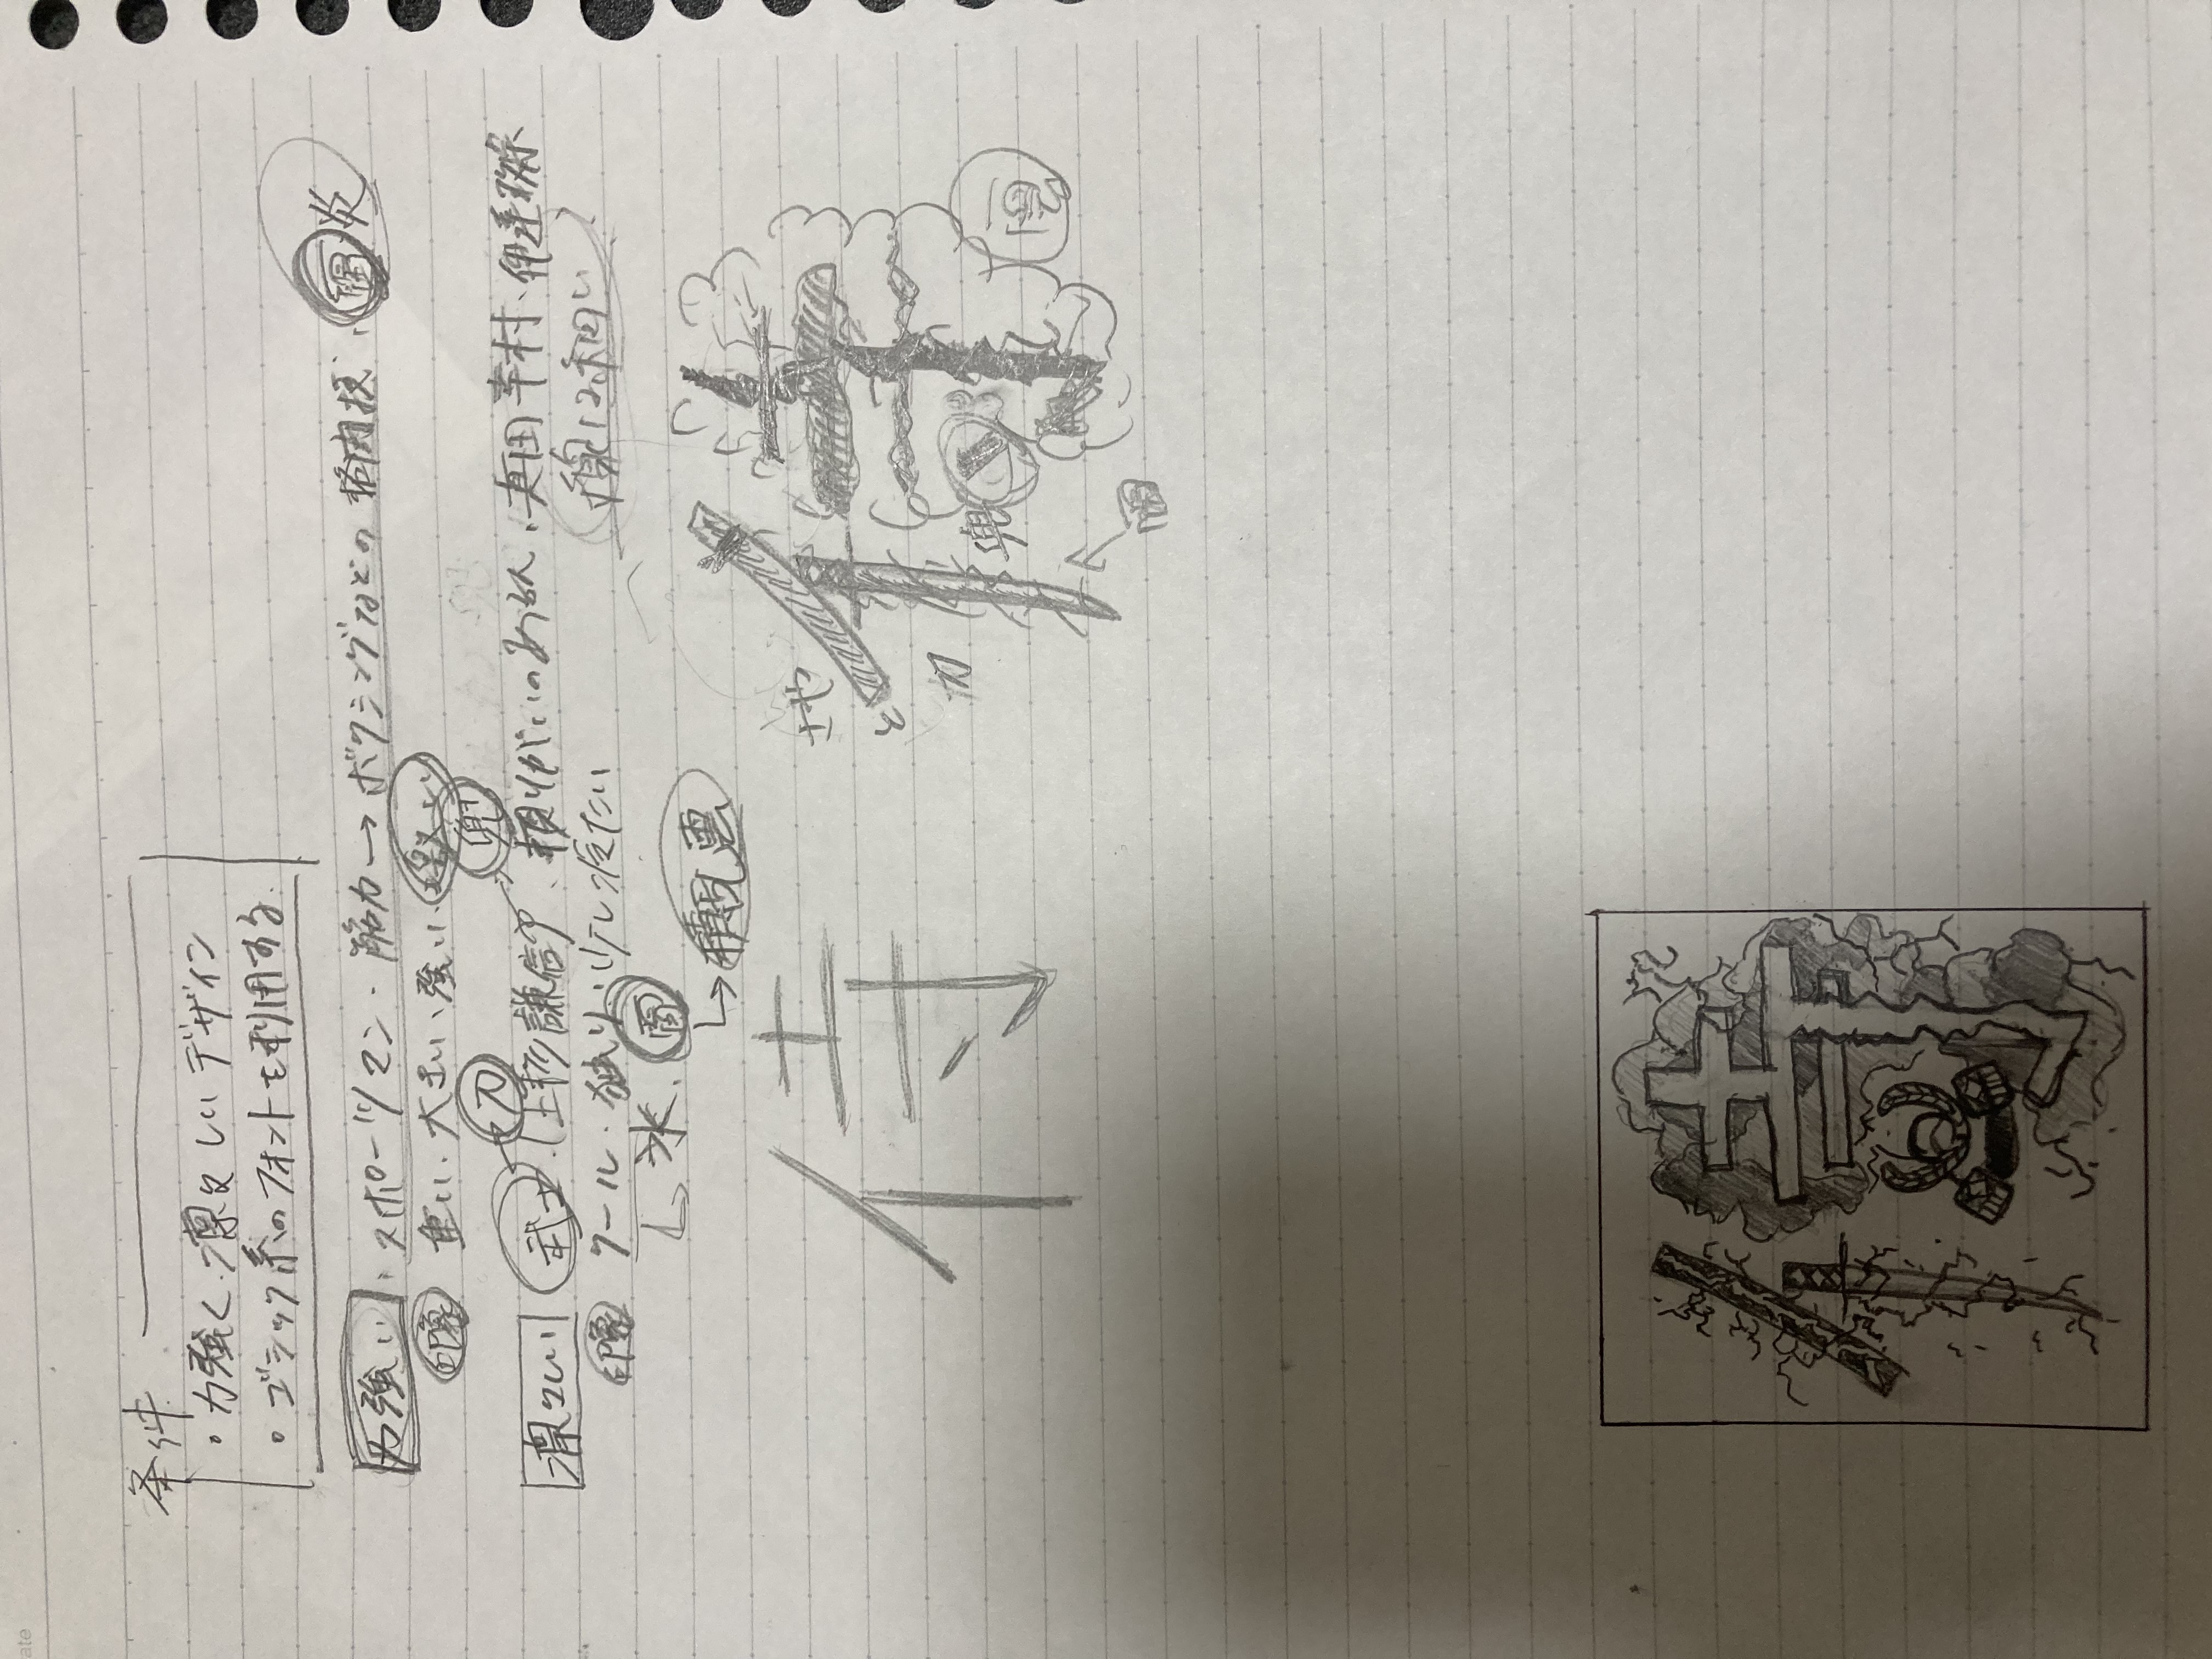 ate
条件
・力強く、凛々しいデザイン
・ゴシック系のフォントを利用する
力強い、スポーツマン・筋力→ボクシングなどの格闘技、炎
印象 重い、大きい、強い、激しい
刀 兜
凛々しい 武士(上杉謙信)、頼りがいのある人、真田幸村、伊達政宗
印象 クール・独り、少し冷たい 線は細い
↳氷、雷
↳積乱雲
侍
さや
と
刀
兜
雷